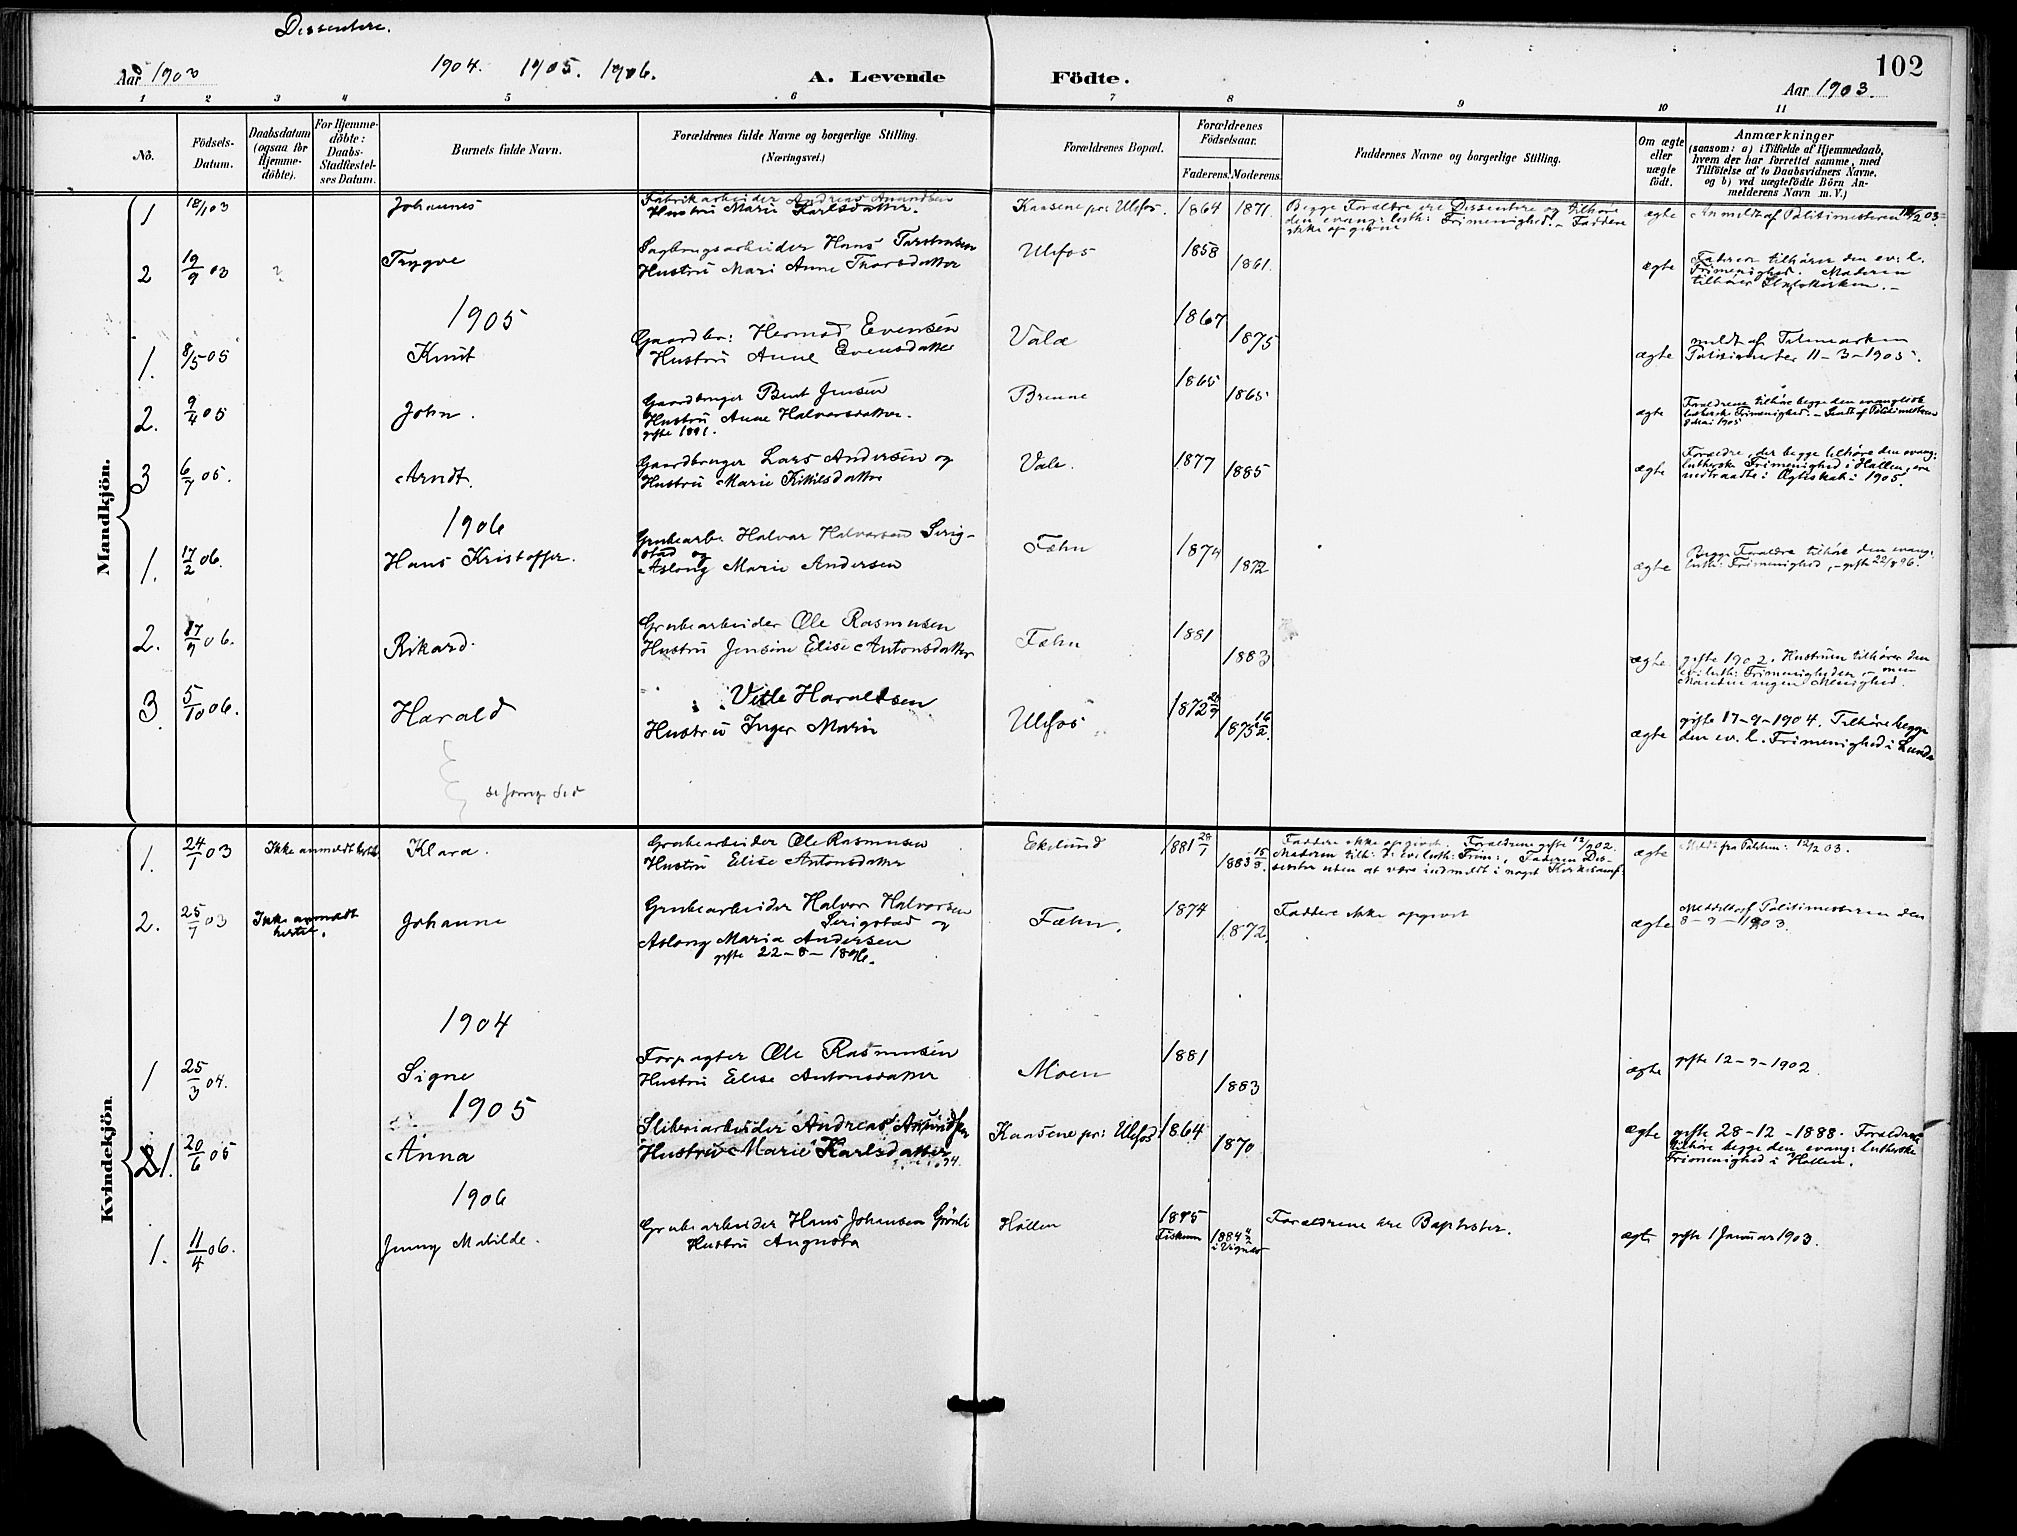 Dissentere.
Aar 1903
1904. 1905. 1906.
A. Levende Födte.
102
Aar 1903.
1 2 3 4 5 6 7 8 9 10 11
No.
Födsels-
Datum.
Daabsdatum
(ogsaa for
Hjemme-
döbte).
For Hjemme-
döbte:
Daabs-
Stadfæstel-
ses Datum.
Barnets fulde Navn.
Forældrenes fulde Navne og borgerlige Stilling.
(Næringsvei.)
Forældrenes Bopæl.
Forældrenes
Födselsaar.
Faderens. Moderens.
Faddernes Navne og borgerlige Stilling.
Om ægte
eller
uægte
födt.
Anmærkninger
(saasom: a) i Tilfælde af Hjemmedaab,
hvem der har forrettet samme, med
Tilföielse af to Daabsvidners Navne.
og b) ved uægtefödte Börn An-
melderens Navn m. V.)
Mandkjön.
1 18/1 03 Johannes
Fabrikarbeider Andreas Amundsen
Hustru Marie Karlsdatter.
Kaasene pr: Ulefos. 1864 1871.
Begge Forældre ere Dissentere og tilhøre
den evang: luth: Frimenighed. – Faddere
ikke opgivne
ægte Anmeldt af Politimesteren 12/2 03.
2 19/9 03 Trygve
Sagbrugsarbeider Hans
Hustru Mari Anne Thorsdatter
Ulefos 1858 1861.
ægte Faderen tilhører den ev. l.
Frimenighed. Moderen
tilhører Statskirken. –
1905
1. 8/5 05 Knut
Gaardbr: Hermod Evensen
Hustru Anne Evensdatter
Vala 1867 1875
ægte meldt af Telemarken
Politimester 11-3-1905.
2. 9/4 05 John.
Gaardbruger Bent Jensen
Hustru Anne Halvorsdatter.
gifte 1891.
Brenne 1865 1865
ægte Forældrene tilhøre begge den evangelisk
lutherske Frimenighed. – Sendt af Politimesteren
8 Mai 1905
3 6/7 05. Arndt.
Gaardbruger Lars Andersen og
Hustru Marie Kittilsdatter
Vale. 1877 1885
ægte Forældre, der begge tilhøre den evang:
lutherske Frimenighed i Hollen, ere
indtraadte i Ægteskab i 1905.
1906
1. 17/2 06. Hans Kristoffer.
Grubearb. Halvor Halvorsen Serig-
stad og
Aslaug Marie Andersen
Fæhn 1874 1872
ægte Begge Forældre tilhøre den evang:
luth: Frimenighed, – gifte 22/8 96.
2. 17/9 06. Rikard.
Grubearbeider Ole Rasmusen
Hustru Jensine Elise Antonsdatter
Fæhn 1881 1883
ægte. gifte 1902. Hustruen tilhører den
ev: luth: Frimenigheden men
Manden ingen Menighed.
3. 5/10 06. Harald
Vetle Haraldsen
Hustru Inger Marie
Ulefos 1872 26/9 1875 16/2.
ægte gifte 17-9-1904. Tilhøre begge
den ev. l. Frimenighed i Lunde
se forrige Sid
Kvindekjön
1. 24/1 03 Ikke anmeldt hertil Klara.
Grubearbeider Ole Rasmusen
Hustru Elise Antonsdatter
Ekelund 1881 28/1 1883 15/9.
Faddere ikke opgivet. Forældrene gifte 12/9 02.
Moderen tilh: d: ev: luth: Frim:, Faderen Dis-
senter uten at være indmeldt i noget Kirkesamf.
ægte Meldt fra Politim: 12/2 03.
2. 25/7 03 Ikke anmeldt
hertil. Johanne
Grubearbeider Halvor Halvorsen
Serigstad og
Aslaug Maria Andersen
gifte 22-8-1896.
Fæhn. 1874 1872.
Faddere ikke opgivet
ægte Meddelt af Politimesteren den
8-9-1903.
1904
1 25/3 04. Signe
Forpagter Ole Rasmusen
Hustru Elise Antonsdatter
Moen 1881 1883
ægte gifte 12-9-1902.
1905
1. 20/6 05 Anna
Sliberiarbeider Andreas Amundsen
Hustru Marie Karlsdatter
Kaasene pr: Ulefos 1864 1870
ægte gifte 28-12-1888. Forældrene
tilhøre begge den evang: lutherske
Frimenighed i Hollen.
1906
1. 11/4 06. Jenny Matilde.
Grubearbeider Hans Johansen Grönli
Hustru Augusta
Hollen 1875
Fiskum 1884 4/2
i Vignæs
Forældrene ere Baptister.
ægte gifte 1 Januar 1903.